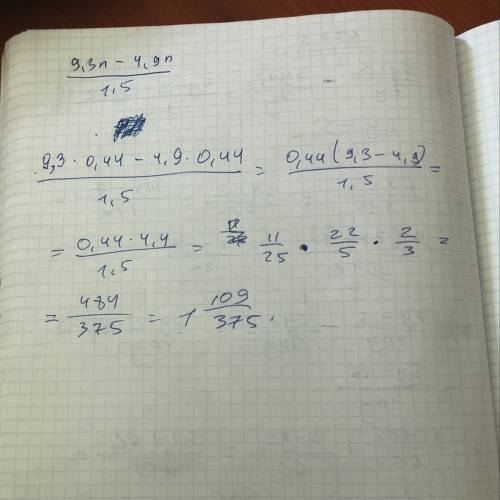 (9,3n - 4,9n)/1,5
(9,3 · 0,44 - 4,9 · 0,44)/1,5 = 0,44(9,3 - 4,9)/1,5 =
= 0,44 · 4,4/1,5 = 11/25 · 22/5 · 2/3 =
= 484/375 = 1 109/375.